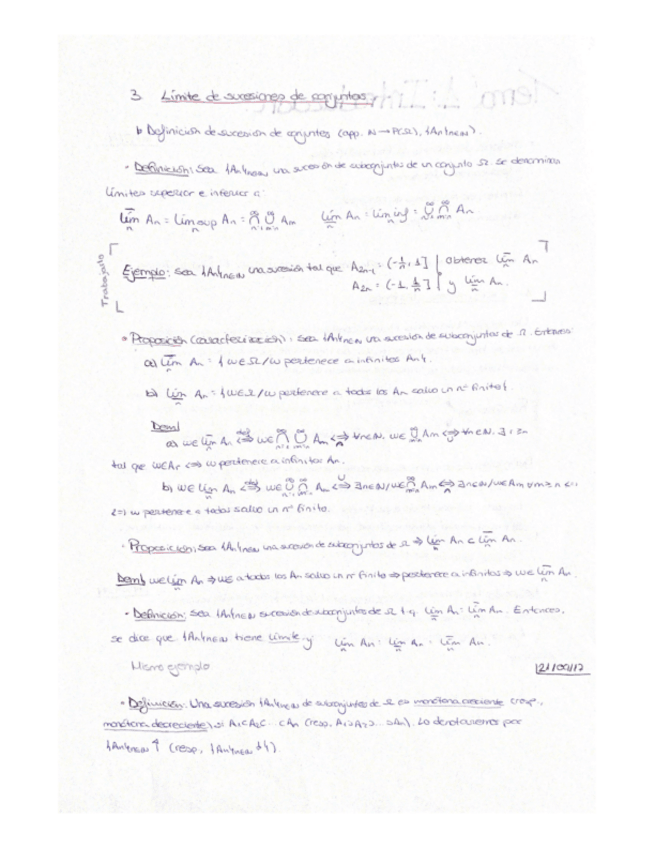 3. Límite de sucesiones de conjuntos.
Definición de sucesión de conjuntos (app. N → P(Ω), {An}n∈N).
• Definición: Sea {An}n∈N una sucesión de subconjuntos de un conjunto Ω. Se denominan
límites superior e inferior a:
lim̅ An = lim sup An = ⋂ ⋃ Am   lim̲ An = lim inf = ⋃ ⋂ An
Trabajado
Ejemplo: Sea {An}n∈N una sucesión tal que A2n-1 = (-1/n, 1] | Obtener lim̅ An
A2n = (-1, 1/n] | y lim̲ An.
• Proposición (caracterización): Sea {An}n∈N una sucesión de subconjuntos de Ω. Entonces:
a) lim̅ An = {w∈Ω / w pertenece a infinitos An}.
b) lim̲ An = {w∈Ω / w pertenece a todos los An salvo un nº finito}.
Dem/
a) w∈ lim̅ An ⇔ w∈ ⋂ ⋃ Am ⇔ ∀n∈N, w∈ ⋃ Am ⇔ ∀n∈N, ∃ r≥n
tal que w∈Ar ⇔ w pertenece a infinitos An.
b) w∈ lim̲ An ⇔ w∈ ⋃ ⋂ Am ⇔ ∃n∈N / w∈ ⋂ Am ⇔ ∃n∈N / w∈Am ∀m≥n ⇔
⇔ w pertenece a todos salvo un nº finito.
• Proposición: Sea {An}n∈N una sucesión de subconjuntos de Ω ⇒ lim̲ An ⊂ lim̅ An.
Dem/ w∈ lim̲ An ⇒ w∈ a todos los An salvo un nº finito ⇒ pertenece a infinitos ⇒ w∈ lim̅ An.
• Definición: Sea {An}n∈N sucesión de subconjuntos de Ω t.q. lim̲ An = lim̅ An. Entonces,
se dice que {An}n∈N tiene límite y lim An = lim̲ An = lim̅ An.
Mismo ejemplo
21/09/17
• Definición: Una sucesión {An}n∈N de subconjuntos de Ω es monótona creciente (resp.,
monótona decreciente), si A1⊂A2⊂...⊂An (resp. A1⊃A2⊃...⊃An). Lo denotaremos por
{An}n∈N ↑ (resp. {An}n∈N ↓).